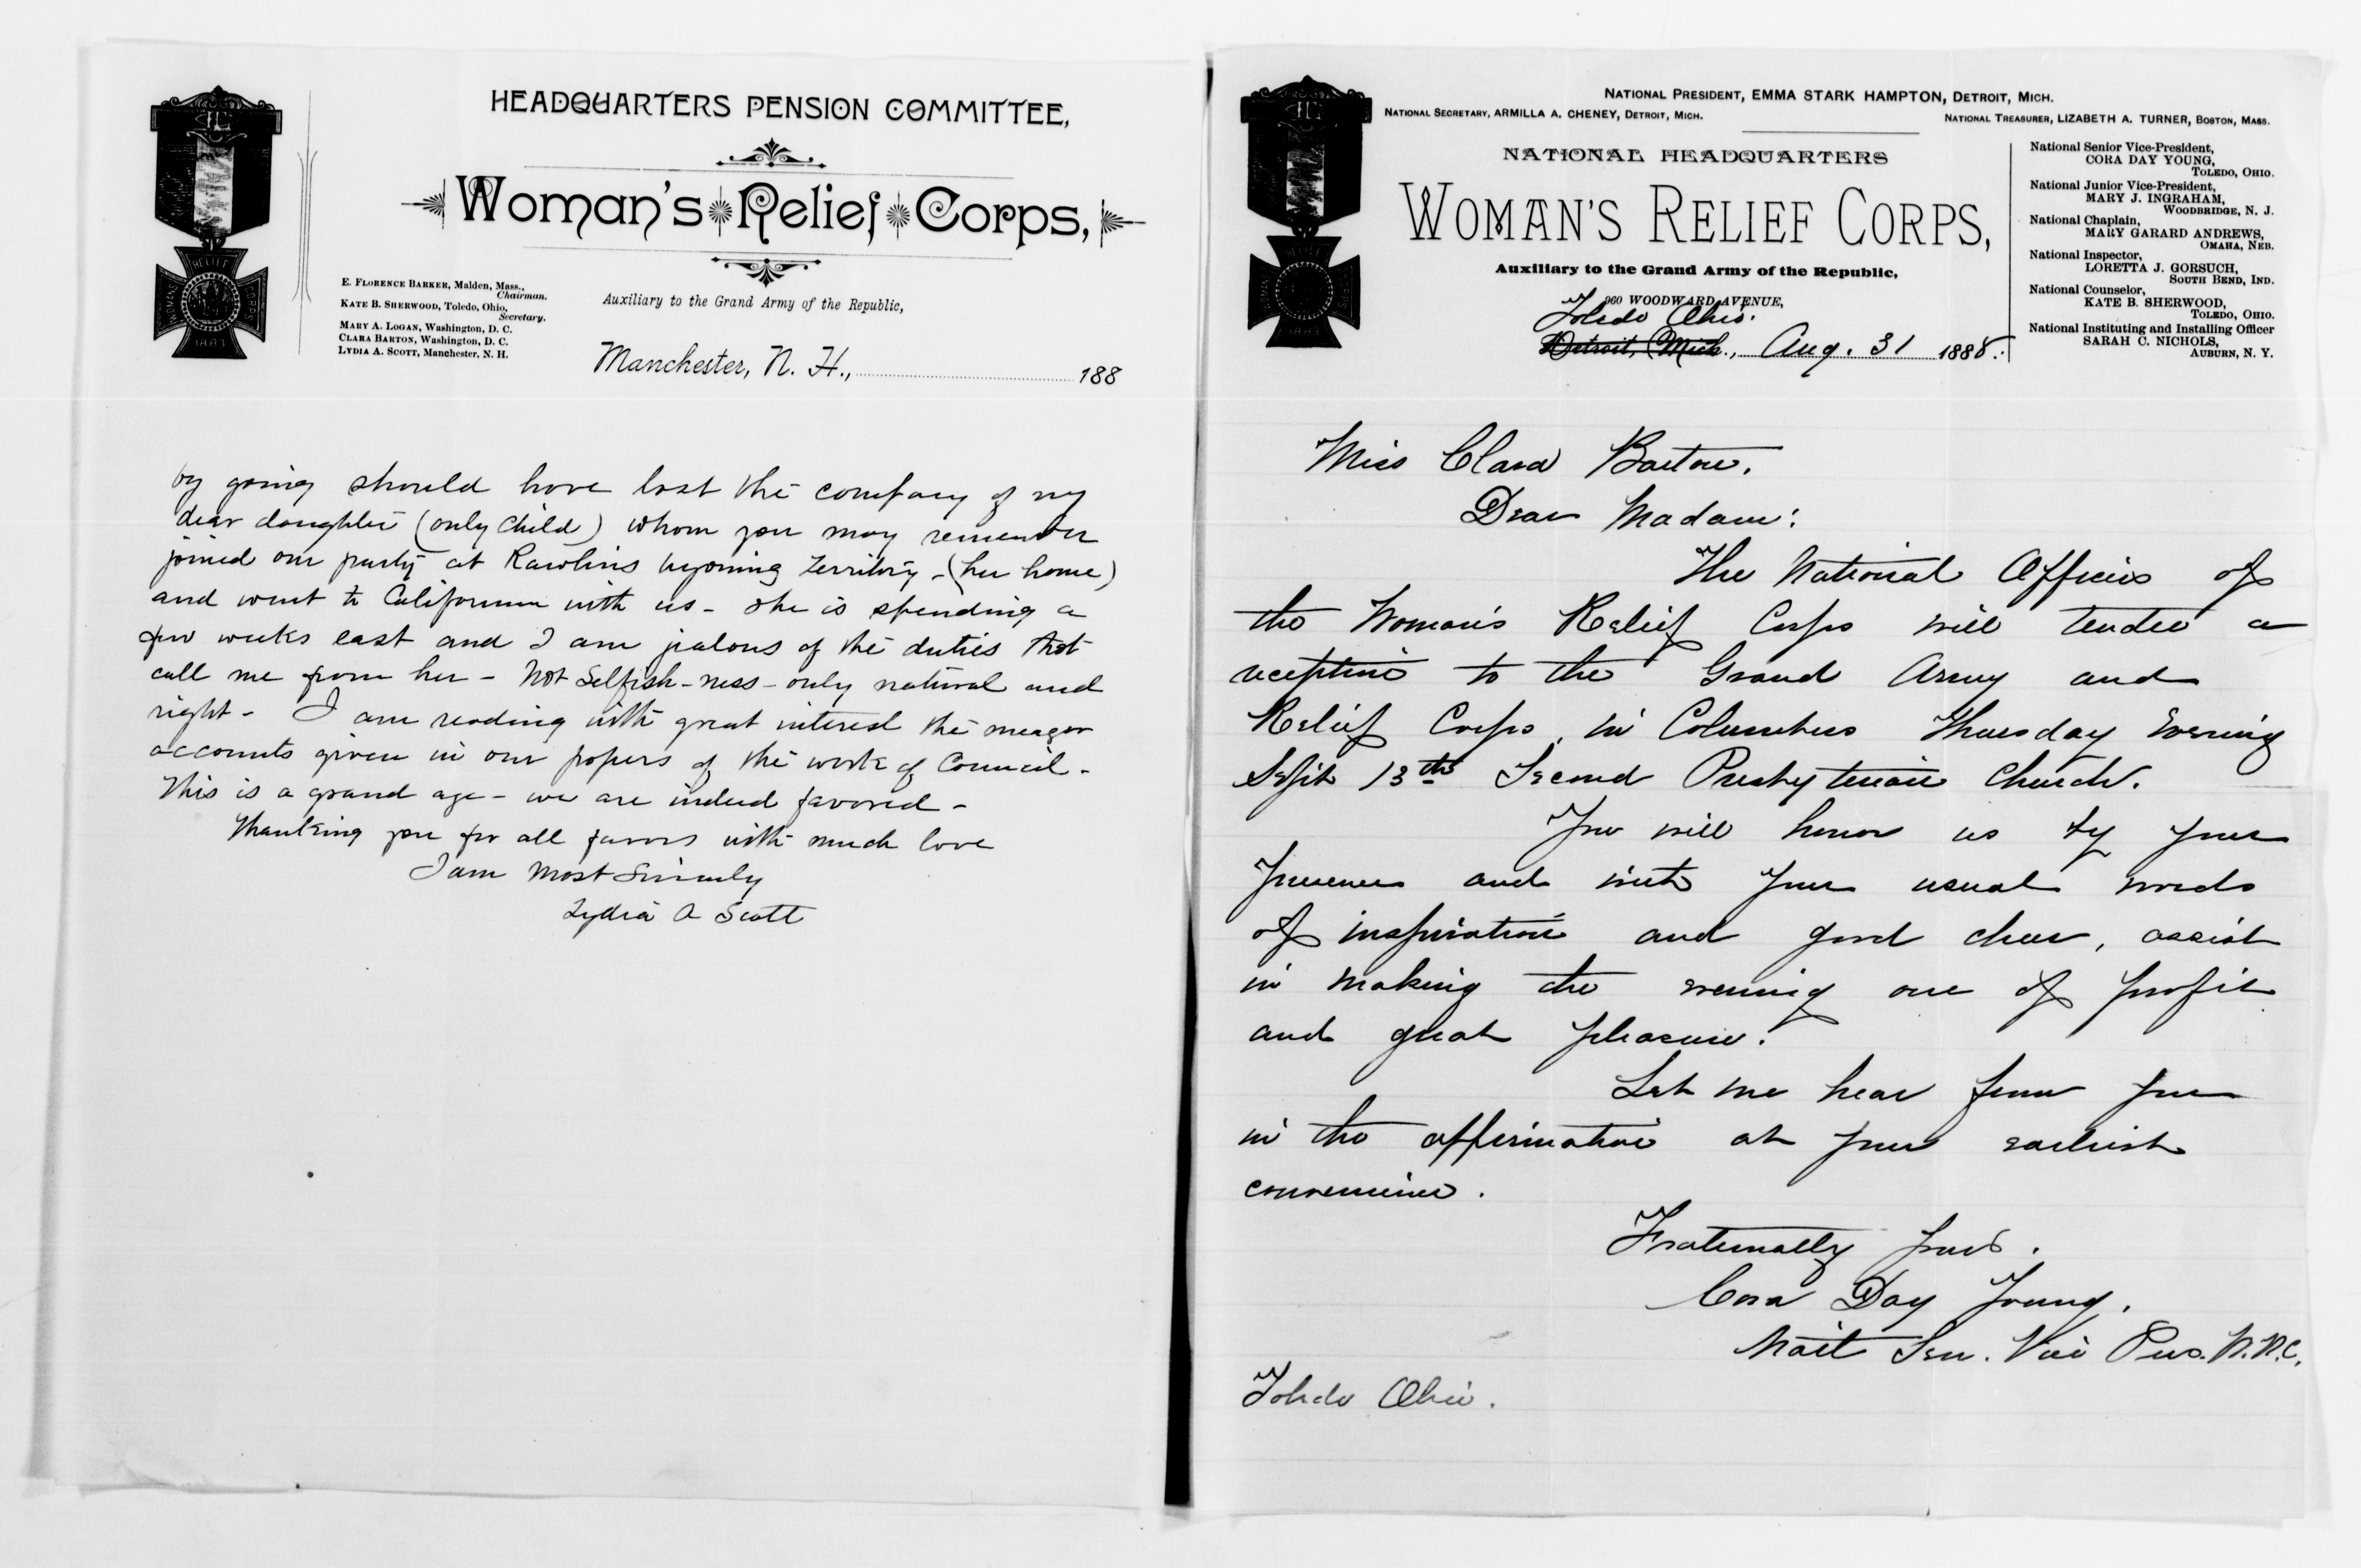 HEADQUARTERS PENSION COMMITTEE,
Woman's Relief Corps,
E. FLORENCE BARKER, Malden, Mass.,
Chairman.
KATE B. SHERWOOD, Toledo, Ohio,
Secretary.
MARY A. LOGAN, Washington, D. C.
CLARA BARTON, Washington, D. C.
LYDIA A. SCOTT, Manchester, N. H.
Auxiliary to the Grand Army of the Republic,
Manchester, N. H., 188
by going should have lost the company of my
dear daughter (only child) whom you may remember
joined our party at Rawlins Wyoming Territory - (her home)
and went to California with us - she is spending a
few weeks east and I am jealous of the duties that
call me from her - Not Selfish-ness - only natural and
right - I am reading with great interest the meager
accounts given in our papers of the work of Council -
This is a grand age - we are indeed favored -
Thanking you for all favors with much love
I am most Sincerely
Lydia A Scott
NATIONAL PRESIDENT, EMMA STARK HAMPTON, DETROIT, MICH.
NATIONAL SECRETARY, ARMILLA A. CHENEY, DETROIT, MICH.
NATIONAL TREASURER, LIZABETH A. TURNER, BOSTON, MASS.
NATIONAL HEADQUARTERS
WOMAN'S RELIEF CORPS,
Auxiliary to the Grand Army of the Republic,
960 WOODWARD AVENUE,
Toledo Ohio.
Detroit, Mich., Aug. 31 1888.
National Senior Vice-President,
CORA DAY YOUNG,
TOLEDO, OHIO.
National Junior Vice-President,
MARY J. INGRAHAM,
WOODBRIDGE, N. J.
National Chaplain,
MARY GARARD ANDREWS,
OMAHA, NEB.
National Inspector,
LORETTA J. GORSUCH,
SOUTH BEND, IND.
National Counselor,
KATE B. SHERWOOD,
TOLEDO, OHIO.
National Instituting and Installing Officer
SARAH C. NICHOLS,
AUBURN, N. Y.
Miss Clara Barton.
Dear Madam:
The National Officers of
the Woman's Relief Corps will tender a
reception to the Grand Army and
Relief Corps, in Columbus Thursday Evening
Sept 13th Second Presbyterian Church.
You will honor us by your
presence and with your usual words
of inspiration and good cheer, assist
in making the evening one of profit
and great pleasure.
Let me hear from you
in the affirmative at your earliest
convenience.
Fraternally yours.
Cora Day Young.
Nat Sen. Vice Pres. W.R.C.
Toledo Ohio.